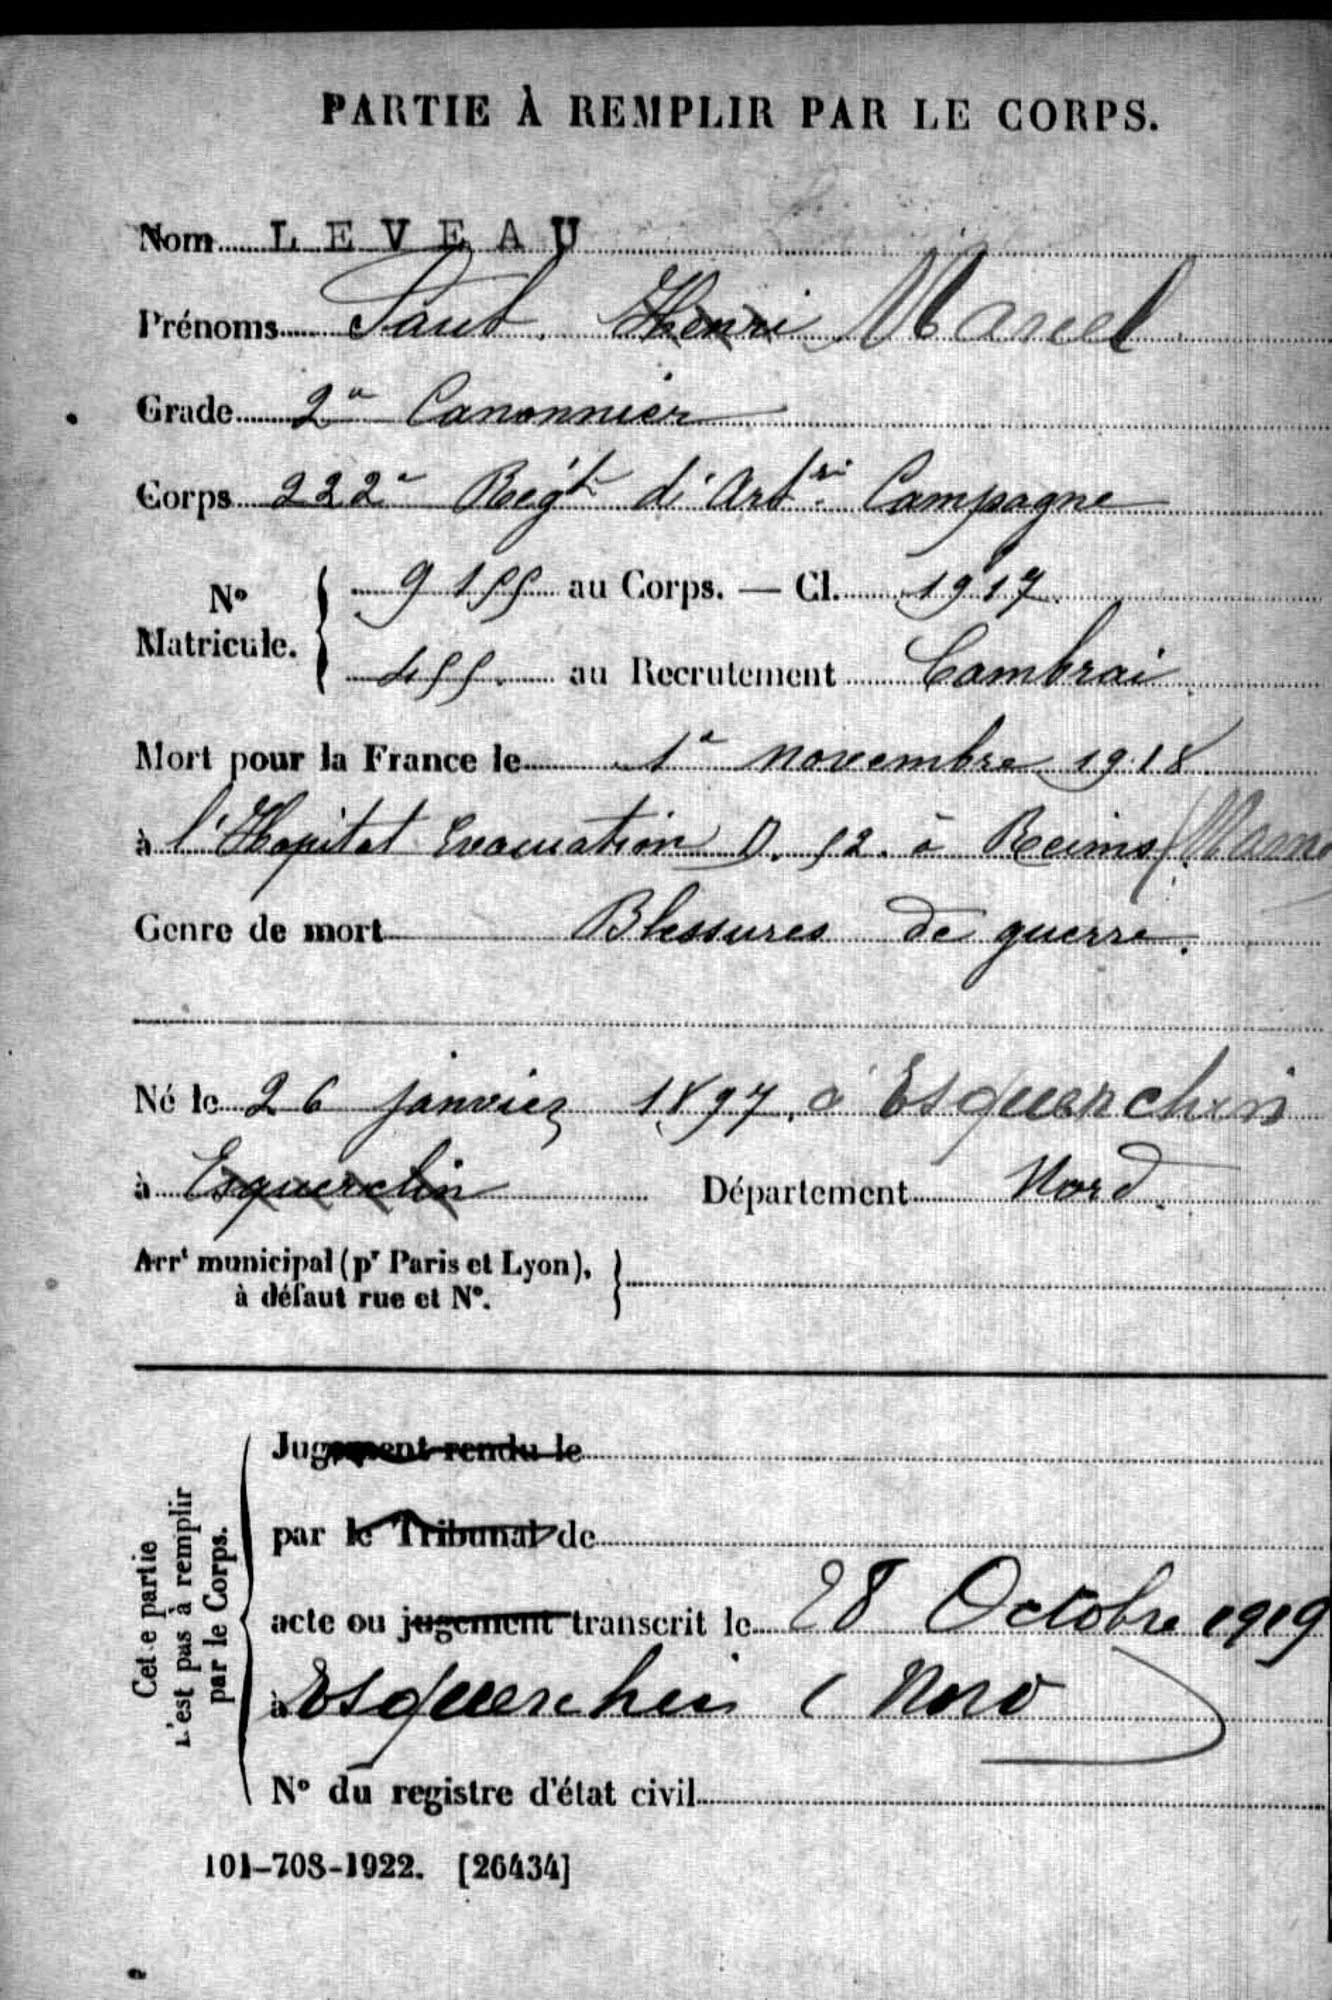 PARTIE À REMPLIR PAR LE CORPS.
Nom LEVEAU
Prénoms Paul Henri Marcel
Grade 2e Canonnier
Corps 222e Régt d'Artrie Campagne
No Matricule. 9155 au Corps. — Cl. 1917
455. au Recrutement Cambrai
Mort pour la France le 1e novembre 1918
à l'Hopital Evacuation D. 52. à Reims (Marne
Genre de mort Blessures de guerre.
Né le 26 janvier 1897, à Esquerchin
à Esquerchin Département Nord.
Arrt municipal (pr Paris et Lyon),
à défaut rue et No.
Cette partie
n'est pas à remplir
par le Corps.
Jugement rendu le
par le Tribunal de
acte ou jugement transcrit le 28 Octobre 1919
à Esquerchin (Nord)
No du registre d'état civil
101-708-1922. [26434]